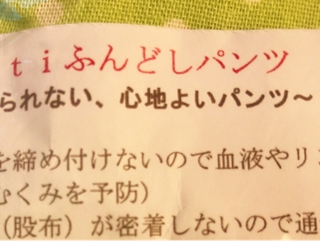 ｔｉふんどしパンツ
られない、心地よいパンツ～
を締め付けないので血液やリン
むくみを予防）
（股布）が密着しないので通